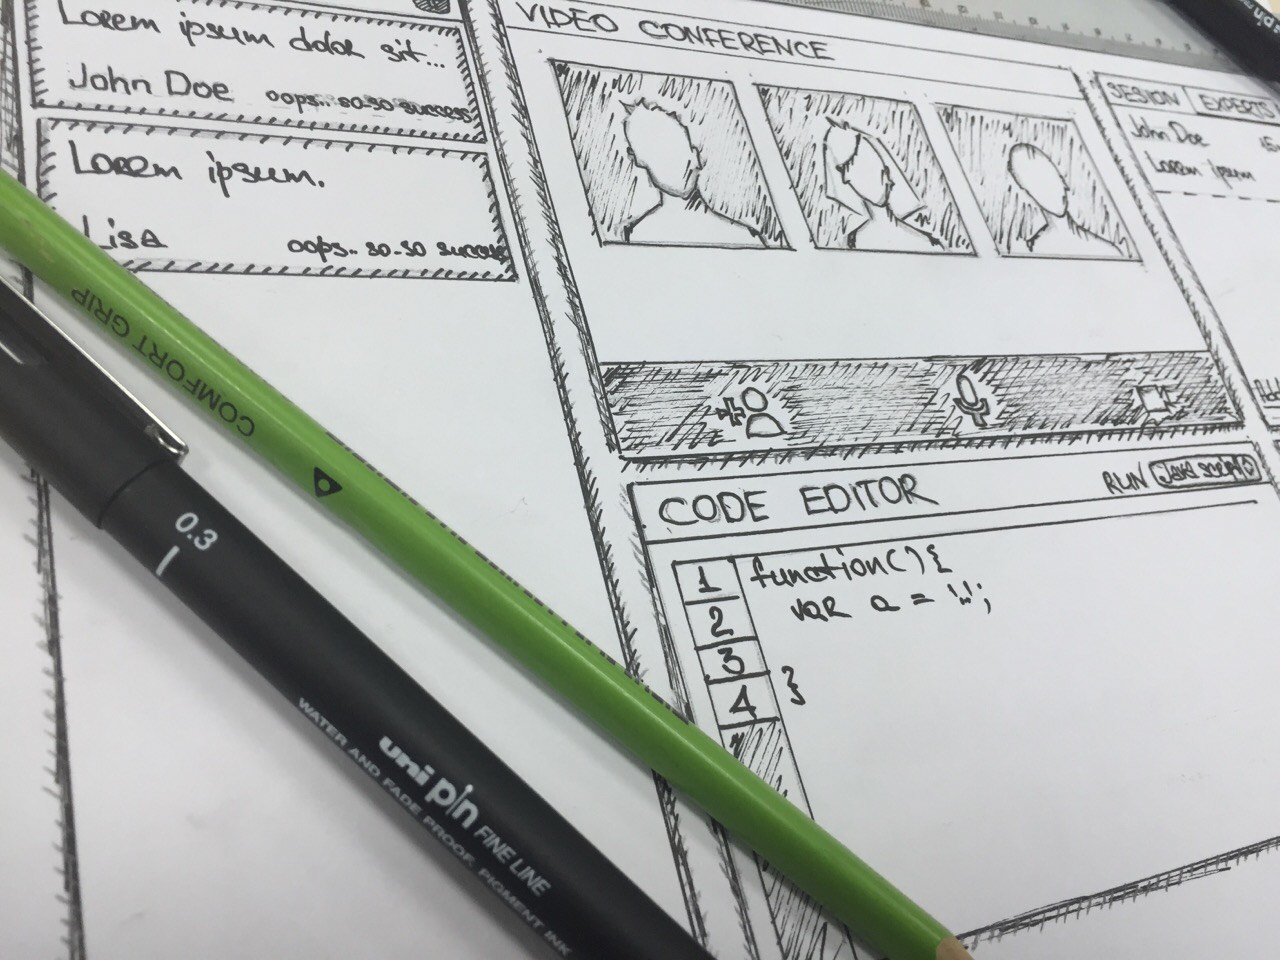 Lorem ipsum dolor sit...
John Doe oops.. so.so success
Lorem ipsum.
Lisa oops.. so-so success
VIDEO CONFERENCE
SESION EXPERTS
John Doe
Lorem ipsum
CODE EDITOR
RUN Java script
1 function(){
2 var a = '..';
3
4 }
COMFORT GRIP
0.3
uni pin FINE LINE
WATER AND FADE PROOF, PIGMENT INK